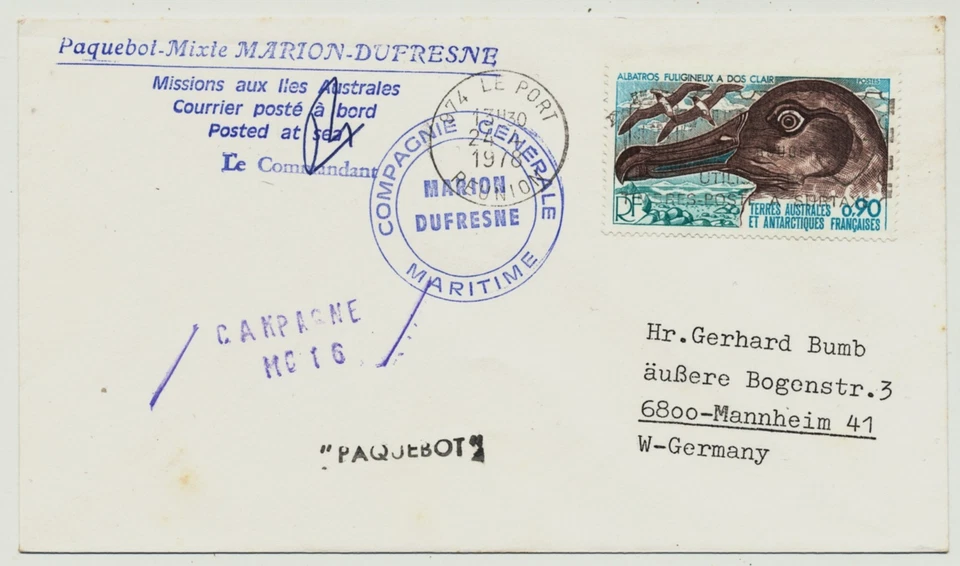 Paquebot-Mixte MARION-DUFRESNE
Missions aux Iles Australes
Courrier posté à bord
Posted at sea
Le Commandant
COMPAGNIE GÉNÉRALE
MARITIME
MARION
DUFRESNE
974 LE PORT
13H30
24
1978
RÉUNION
ALBATROS FULIGINEUX A DOS CLAIR
POSTES
RF
TERRES AUSTRALES
ET ANTARCTIQUES FRANÇAISES
0,90
CAMPAGNE
MD 16
"PAQUEBOT"
Hr.Gerhard Bumb
äußere Bogenstr.3
6800-Mannheim 41
W-Germany